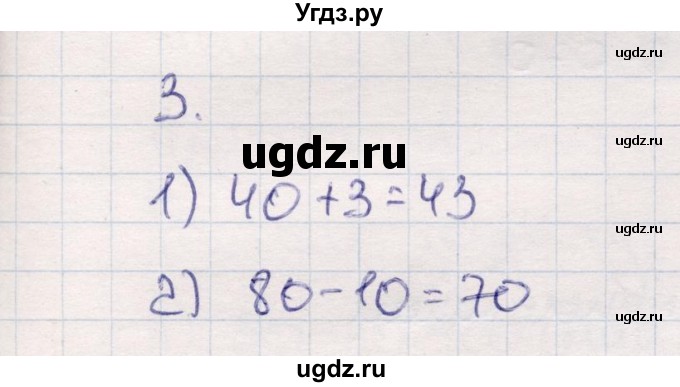 Угдз.ру
ugdz.ru
ugdz.ru
3.
ugdz.ru
ugdz.ru
1) 40+3=43
ugdz.ru
2) 80-10=70
ugdz.ru
ugdz.ru